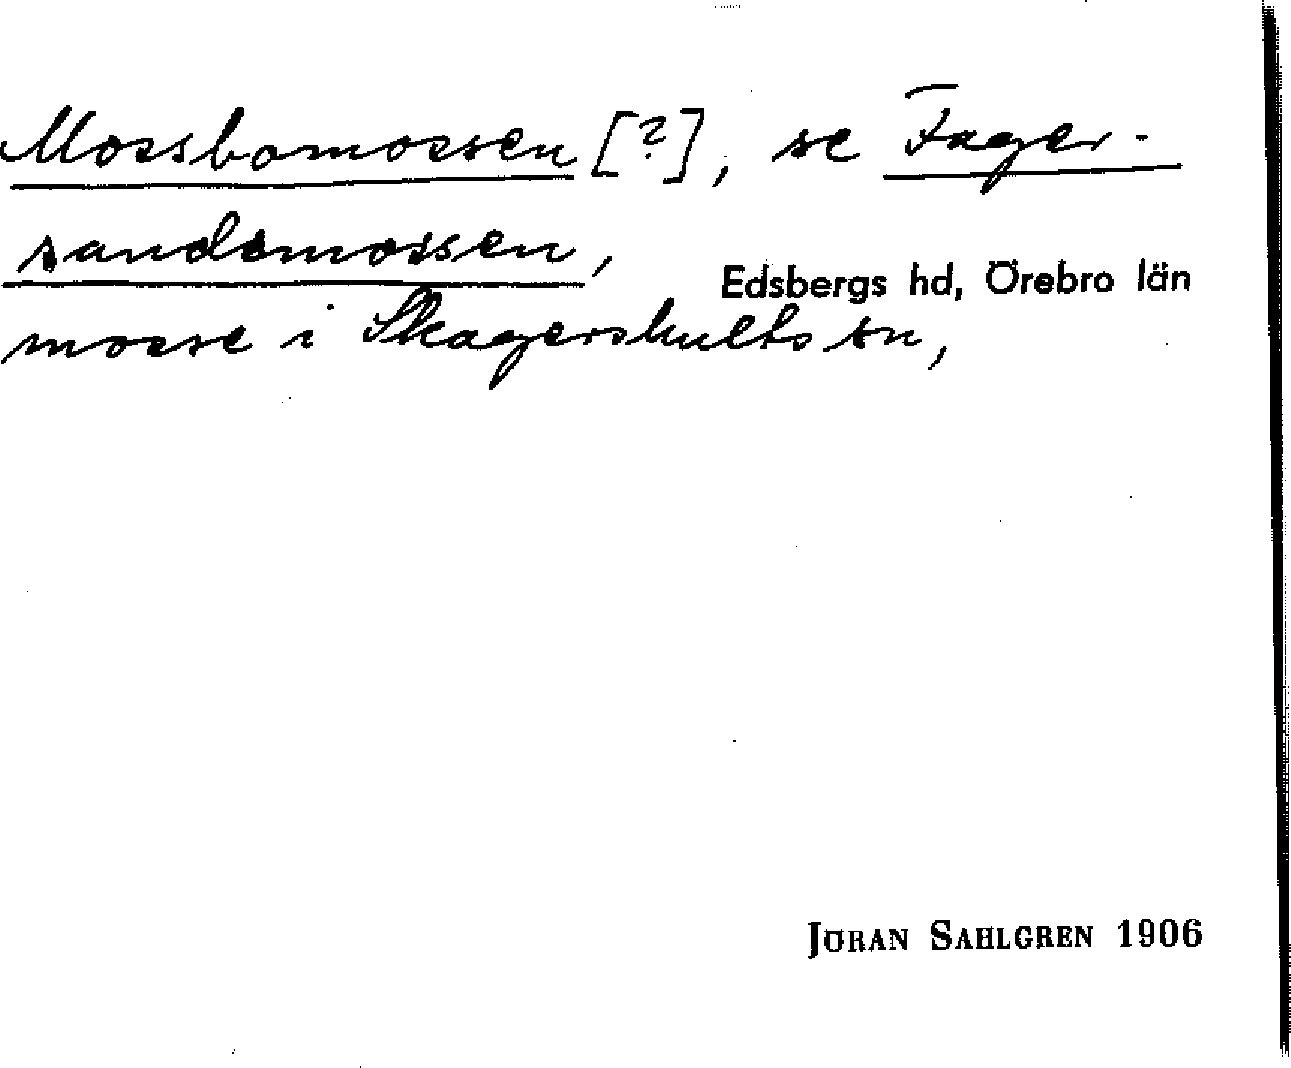 Mossbomossen [?], se Fager-
sandsmossen,
Edsbergs hd, Örebro län
mosse i Skagershults sn,
JÖRAN SAHLGREN 1906